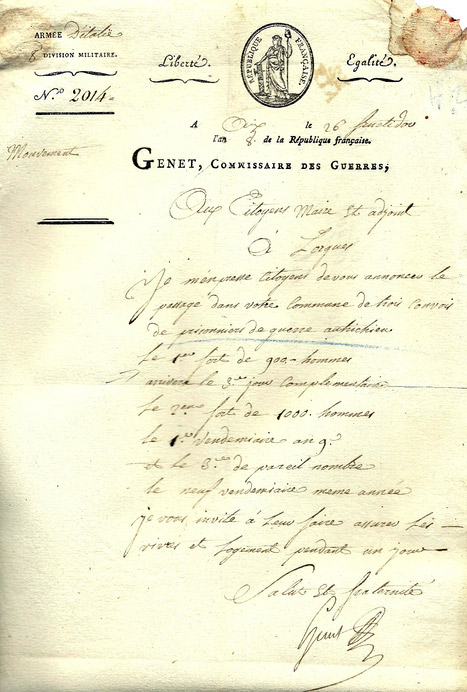 ARMÉE D'Italie
8e DIVISION MILITAIRE.
N.º 2014.
Mouvement
Liberté.
RÉPUBLIQUE FRANÇAISE.
Egalité.
A Aix le 26 fructidor
l'an 8. de la République française.
GENET, COMMISSAIRE DES GUERRES,
Aux Citoyens Maire et adjoint
à Lorgues
Je m'empresse Citoyens de vous annoncer le
passage dans votre Commune de trois convois
de prisonniers de guerre autrichien
Le 1er fort de 900. hommes
arrivera le 3me jour Complementaire
Le 2eme fort de 1000. hommes
le 1er vendemiaire an 9.
et le 3me de pareil nombre
le neuf vendemiaire meme année
je vous invite à Leur faire assurer Les
vivres et Logement pendant un jour
Salut et fraternité
Genet